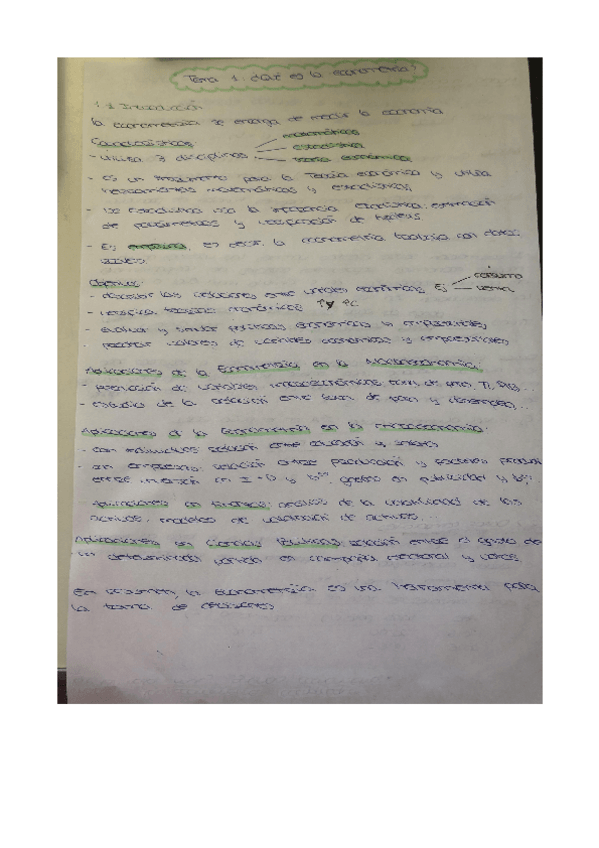 Tema 1: ¿Qué es la econometría?
1.1 Introducción
La econometría se encarga de medir la economía
Características
matemáticas
- utiliza 3 disciplinas estadística
teoría económica
- es un instrumento para la Teoría económica y utiliza
herramientas matemáticas y estadísticas
- la estadística usa la inferencia estadística: estimación
de parámetros y
- Es empírica, es decir, la econometría trabaja con datos
Objetivos:
- describir las relaciones entre variables económicas Ej consumo
renta
- verificar teorías económicas
- evaluar y simular políticas económicas o empresariales
- predecir valores de variables económicas y empresariales
Aplicaciones de la Econometría en la Macroeconomía:
- predicción de variables macroeconómicas
- estudio de la relación entre
Aplicaciones de la Econometría en la microeconomía:
- con individuos: relación entre educación y
- en empresas: relación entre producción y factores
entre inversión en I+D y bº, gastos en publicidad y bº
Aplicaciones en finanzas: análisis de la volatilidad de los
activos, modelos de valoración de activos.
Aplicaciones en Ciencias Políticas: relación entre el gasto de
un determinado partido en campaña electoral y votos
En resumen, la econometría es un instrumento para
la toma de decisiones